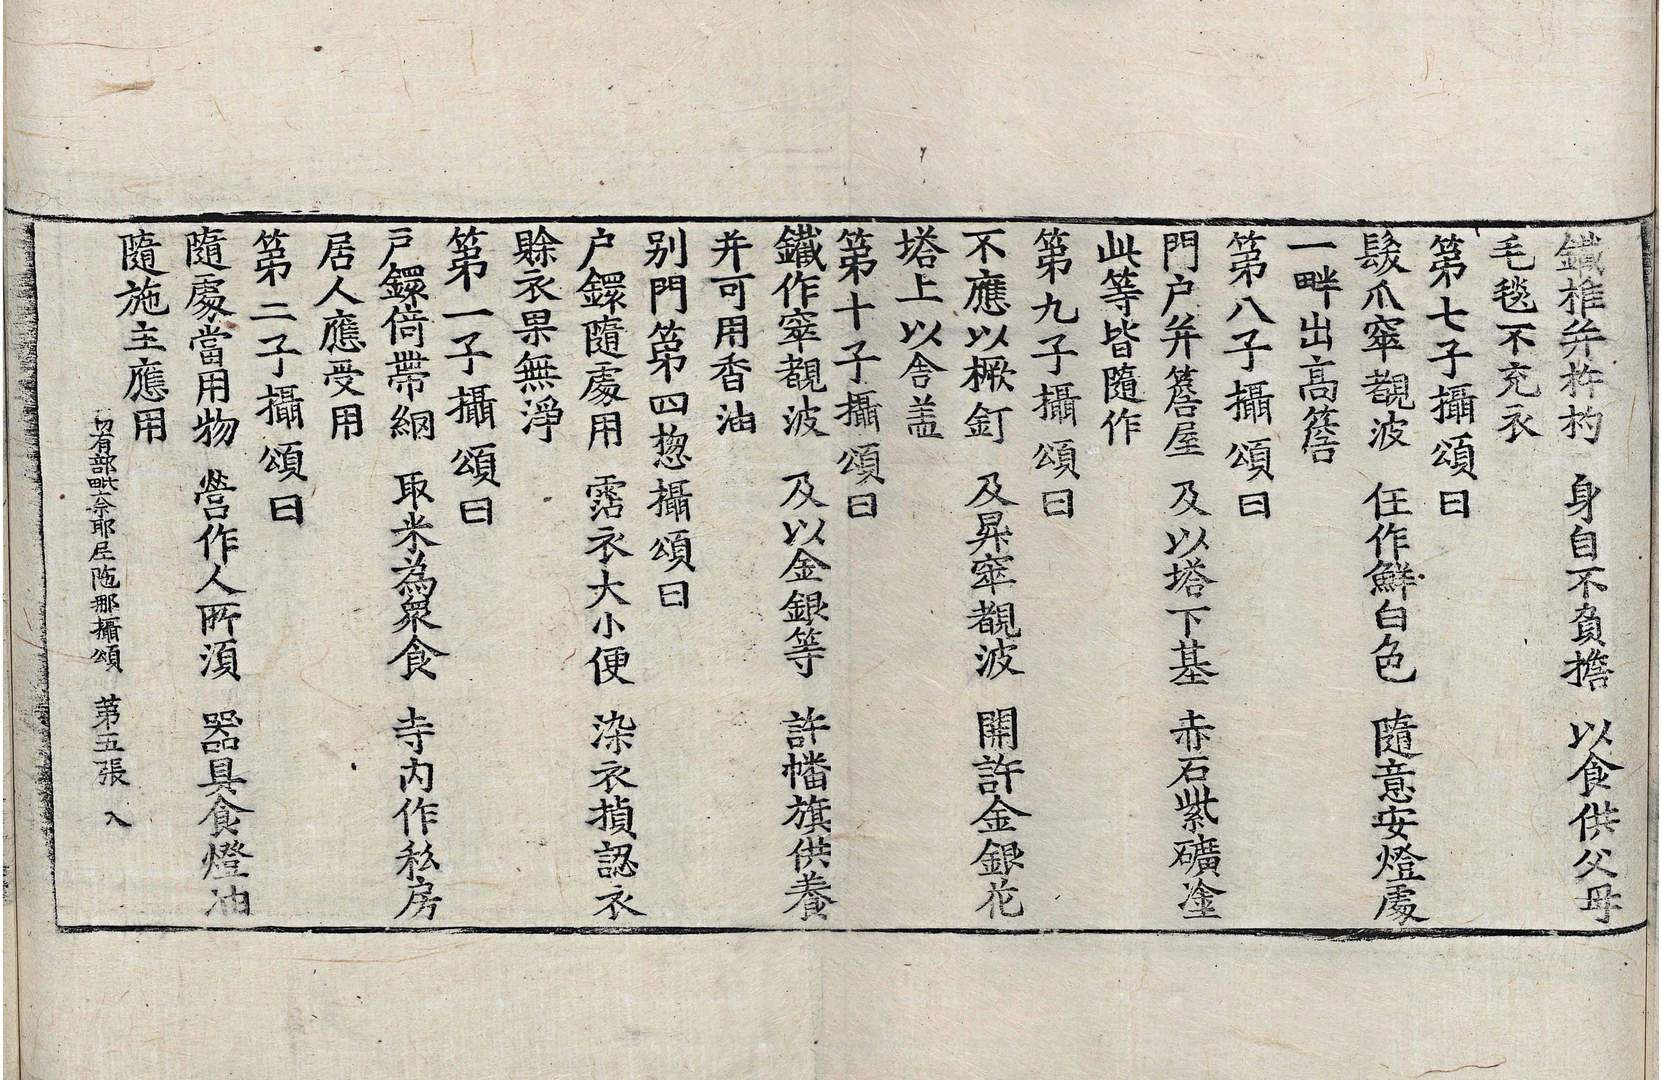 鐵椎并杵杓　身自不負擔　以食供父母
毛毯不充衣
第七子攝頌曰
髮爪窣覩波　任作鮮白色　隨意安燈處
一畔出高簷
第八子攝頌曰
門户并簷屋　及以塔下基　赤石紫礦塗
此等皆隨作
第九子攝頌曰
不應以橛釘　及昇窣覩波　開許金銀花
塔上以舍盖
第十子攝頌曰
鐵作窣覩波　及以金銀等　許幡旗供養
并可用香油
别門第四揔攝頌曰
户鐶隨處用　霑衣大小便　染衣損認衣
賖衣果無淨
第一子攝頌曰
户鐶倚帶網　取米為衆食　寺内作私房
居人應受用
第二子攝頌曰
隨處當用物　營作人所湏　器具食燈油
隨施主應用
有部毗奈耶尼陁那攝頌　第五張　入